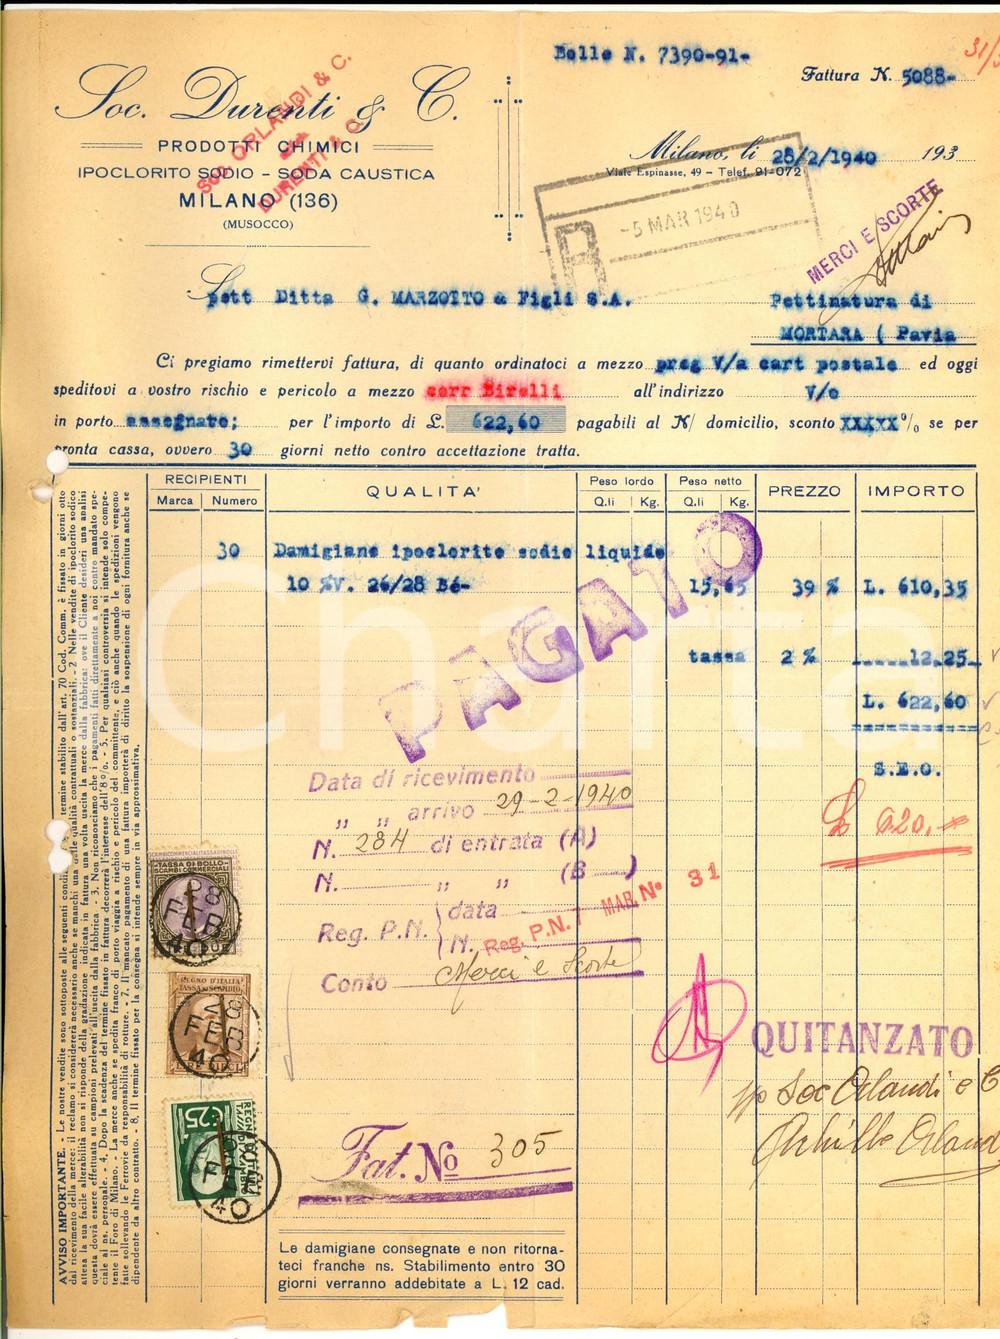 Bolle N. 7390-91-
31/3
Fattura N. 5088-
Soc. Durenti & C.
PRODOTTI CHIMICI
IPOCLORITO SODIO - SODA CAUSTICA
MILANO (136)
(MUSOCCO)
SOC. ORLANDI & C.
DURENTI & C.
Milano, li 28/2/1940 193
Viale Espinasse, 49 - Telef. 91-072
R
-5 MAR 1940
MERCI E SCORTE
Spett Ditta G. MARZOTTO & Figli S.A.
Pettinatura di
MORTARA ( Pavia
Ci pregiamo rimettervi fattura, di quanto ordinatoci a mezzo preg V/a cart postale ed oggi
speditovi a vostro rischio e pericolo a mezzo corr Birolli all'indirizzo V/o
in porto assegnato; per l'importo di £. 622,60 pagabili al N/ domicilio, sconto XXXXX % se per
pronta cassa, ovvero 30 giorni netto contro accettazione tratta.
RECIPIENTI
Marca Numero
QUALITA'
Peso lordo
Q.li Kg.
Peso netto
Q.li Kg.
PREZZO
IMPORTO
30 Damigiane ipoclorito sodio liquido
10 %V. 26/28 Bé- 15,65 39 % L. 610,35
tassa 2 % 12,25
L. 622,60
S.E.O.
PAGATO
£ 620,-
Data di ricevimento
" " arrivo 29-2-1940
N. 284 di entrata (A)
N. " " (B )
Reg. P.N. data
N.
Reg. P.N. 7 MAR. No 31
Conto Merci e Scorte
TASSA DI BOLLO
SCAMBI COMMERCIALI
28 FEB 40
REGNO D'ITALIA
TASSA SCAMBIO
LIRE DIECI
28 FEB 40
C25
FEB 40
QUITANZATO
pp Soc Orlandi e C
Achille Orland
Fat. No 305
Le damigiane consegnate e non ritorna-
teci franche ns. Stabilimento entro 30
giorni verranno addebitate a L. 12 cad.
AVVISO IMPORTANTE. - Le nostre vendite sono sottoposte alle seguenti condi termine stabilito dall'art. 70 Cod. Comm. è fissato in giorni otto
dal ricevimento della merce: il reclamo si considererà necessario anche se manchi una delle qualità contrattuali o sostanziali. - 2 Nelle vendite di ipoclorito sodico
attesa la sua facile alterabilità non si risponde della gradazione indicata in fattura una volta uscita la merce dalla fabbrica: ove il Cliente desideri una analisi
questa dovrà essere effettuata su campioni prelevati all'uscita dalla fabbrica - 3. Non riconosciamo che i pagamenti fatti direttamente a noi contro mandato spe-
ciale al ns. personale. - 4. Dopo la scadenza del termine fissato in fattura decorrerà l'interesse dell'8%. - 5. Per qualsiasi controversia si intende solo compe-
tente il Foro di Milano. - La merce anche se spedita franco di porto viaggia a rischio e pericolo del committente, e ciò anche quando le spedizioni vengono
fatte sollevando le Ferrovie da responsabilità di rotture. - 7. Il mancato pagamento di una fattura importerà di diritto la sospensione di ogni fornitura anche se
dipendente da altro contratto. - 8. Il termine fissato per la consegna si intende sempre in via approssimativa.
Charta